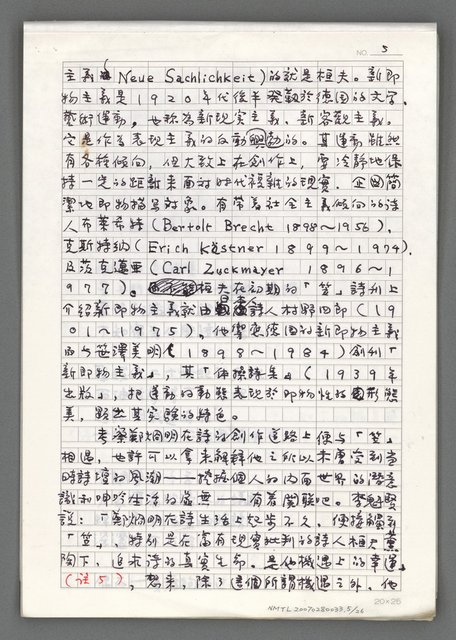 NO. 5
主義(Neue Sachlichkeit)的就是桓夫。新即
物主義是1920年代後半發動於德國的文字、
藝術運動,也稱為新現實主義、新客觀主義。
它是作為表現主義的反動興動的。其運動雖然
有各種傾向,但大致上在創作上,要冷靜地保
持一定的距離來面對時代複雜的現實,企圖簡
潔地即物描寫對象。有帶著社會主義傾向的詩
人布萊希特(Bertolt Brecht 1898~1956)、
克斯特納(Erich Kästner 1899~1974)、
及茨克邁亞(Carl Zuckmayer 1896~1
977)。桓夫在初期的「笠」詩刊上
介紹新即物主義就由日本詩人村野四郎(19
01~1975),他響應德國的新即物主義
而與笹澤美明(1898~1984)創刊「
新即物主義」,其「体操詩集」(1939年
出版),把運動的動態表現於即物性的圖形態
美,顯出其實驗的特色。
考察鄭烱明在詩的創作道路上便與「笠」
相遇,也許可以拿來解釋他之所以未遭受到當
時詩壇的風潮——挖掘個人的內面世界的潛意
識和呻吟生活的虛無——有着關聯吧。李魁賢
說:「鄭烱明在詩生活上起步不久,便接觸到
「笠」,特別是在富有現實批判的詩人桓夫薰
陶下,追求詩的真實生命,是他機遇上的幸運
(註5),想來,除了這個所謂機遇之外,他
20×25
NMTL20070280033,5/26